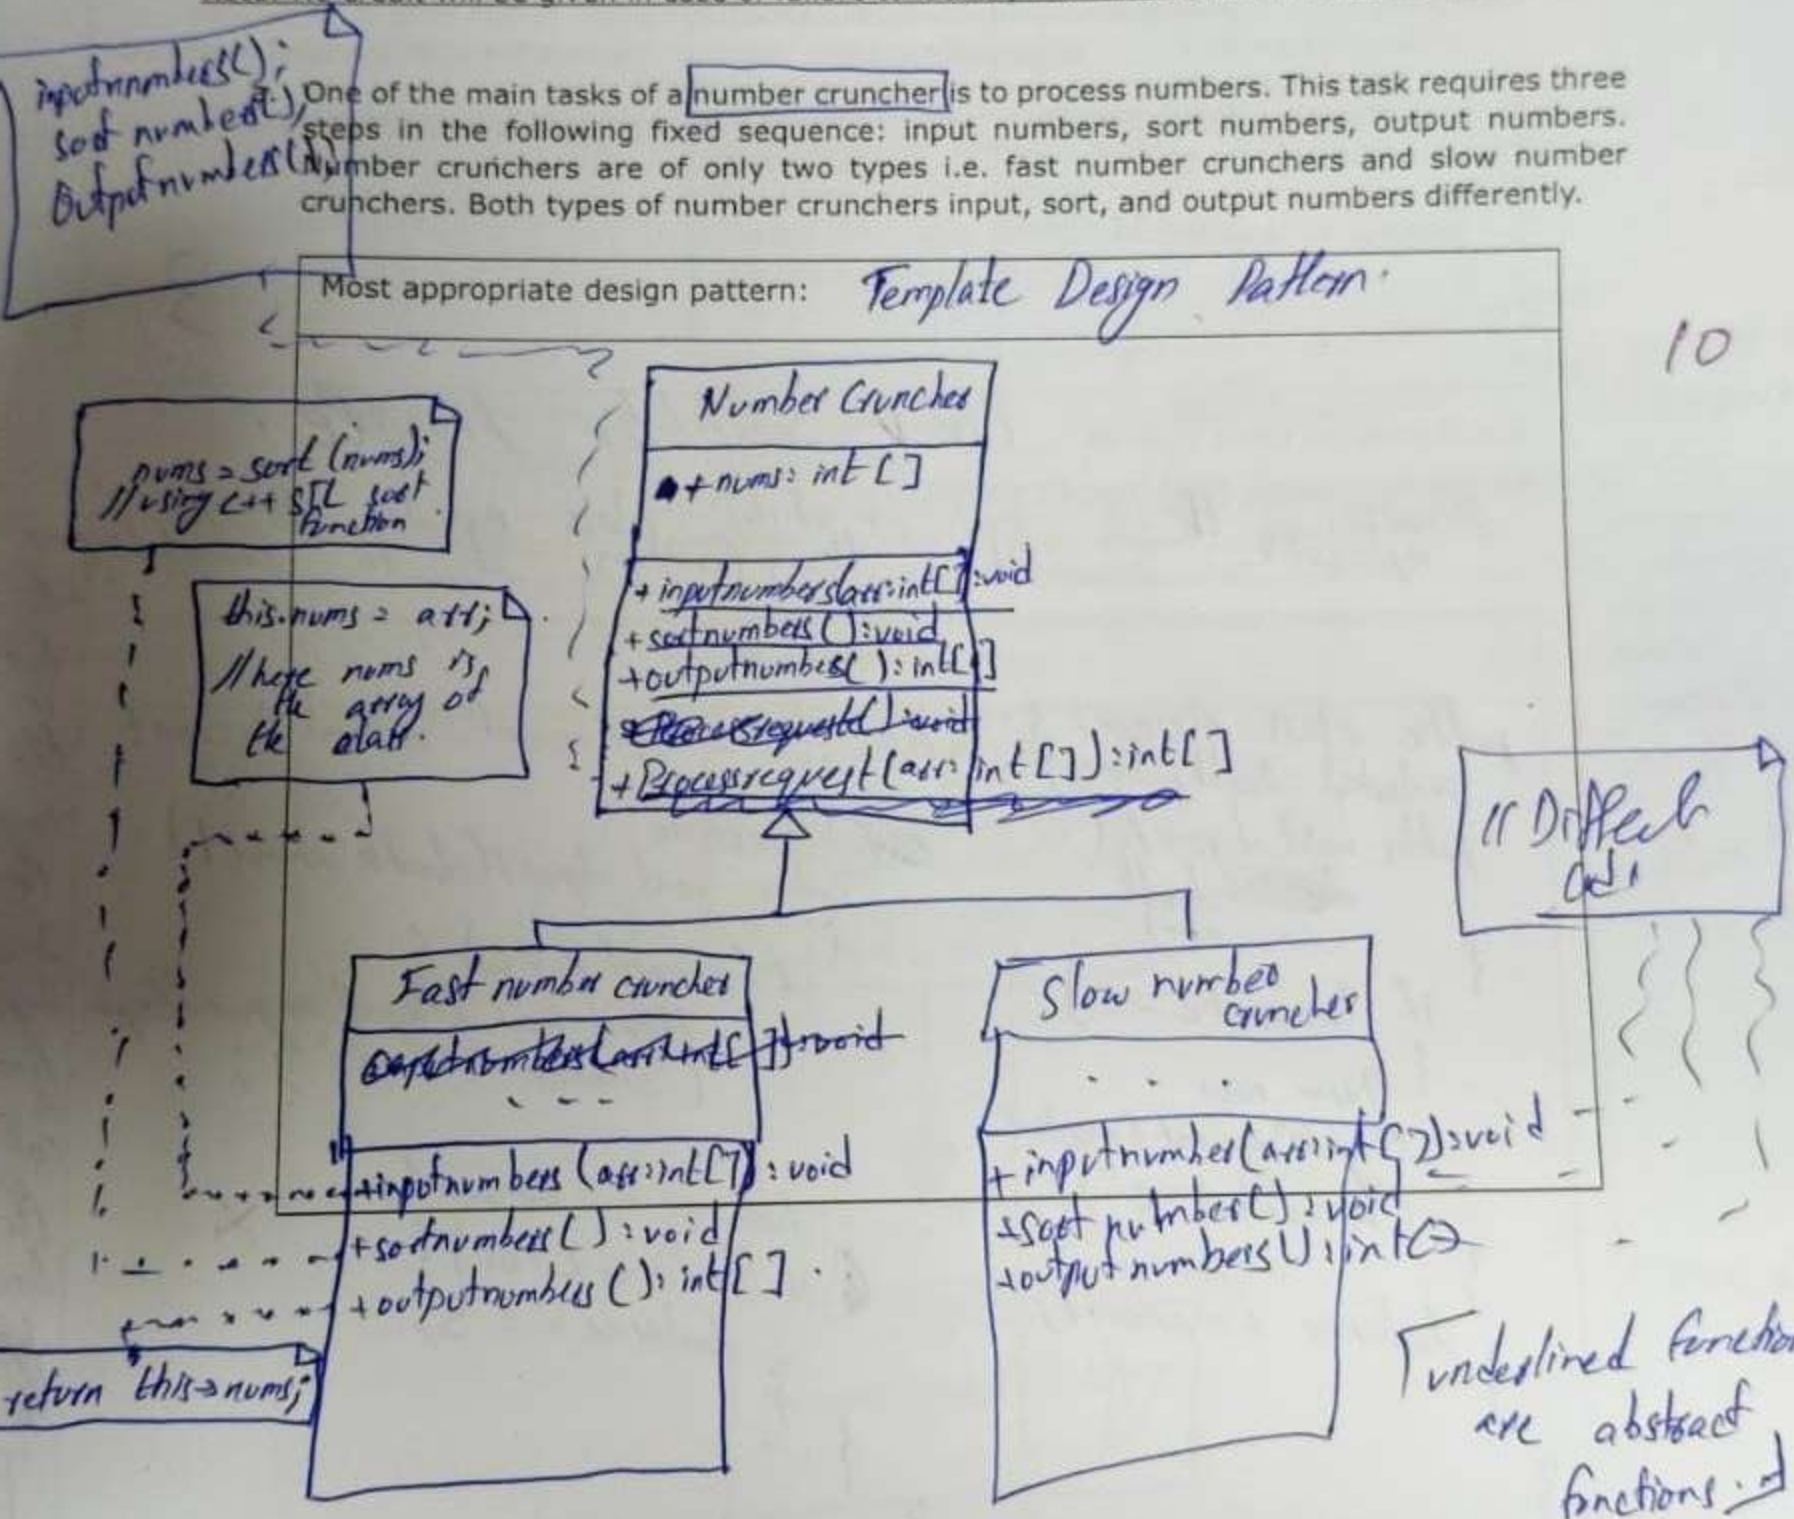 inputnumbers();
sort numbers();
Outputnumbers();
One of the main tasks of a number cruncher is to process numbers. This task requires three
steps in the following fixed sequence: input numbers, sort numbers, output numbers.
Number crunchers are of only two types i.e. fast number crunchers and slow number
crunchers. Both types of number crunchers input, sort, and output numbers differently.
Most appropriate design pattern: Template Design Pattern.
10
Number Cruncher
+ nums: int []
+ inputnumbers(arr:int[]):void
+ sortnumbers():void
+outputnumbers():int[]
+ Processrequest(arr: int[]):int[]
nums = sort (nums);
//using C++ STL sort
function
this.nums = arr;
//here nums is
the array of
the class.
// Different
Fast number cruncher
- - -
+inputnumbers (arr:int[]) : void
+sortnumbers() : void
+outputnumbers(): int[]
Slow number
cruncher
. . .
+inputnumber(arr:int[]):void
+sort number():void
+output numbers():int[]
return this->nums;
underlined function
are abstract
functions.